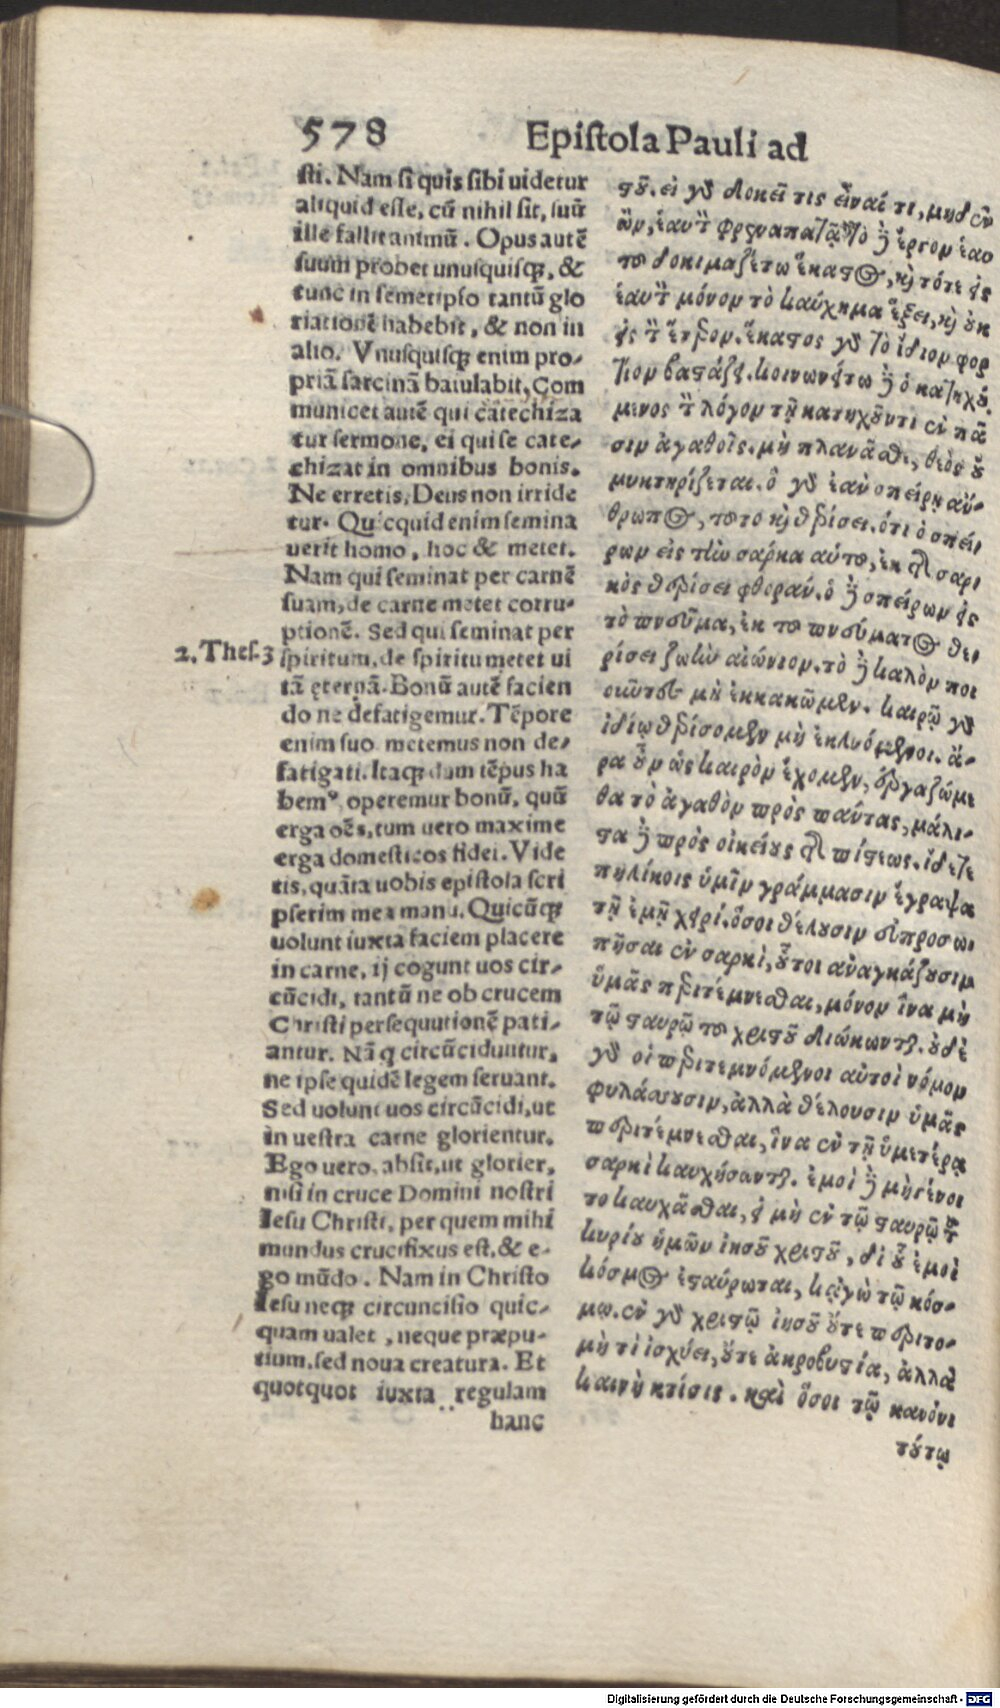 578 Epiſtola Pauli ad
ſti. Nam ſi quis ſibi uidetur
aliquid eſſe, cū nihil ſit, ſuū
ille fallit animū. Opus autē
ſuum probet unuſquiſq;, &
tunc in ſemetipſo tantū glo
riationē habebit, & non in
alio. Vnuſquiſq; enim pro-
priā ſarcinā baiulabit, Com
municet autē qui catechiza
tur ſermone, ei qui ſe cate-
chizat in omnibus bonis.
Ne erretis, Deus non irride
tur. Quicquid enim ſemina
uerit homo, hoc & metet.
Nam qui ſeminat per carnē
ſuam, de carne metet corru-
ptionē. Sed qui ſeminat per
2. Theſ. 3
ſpiritum, de ſpiritu metet ui
tā ęternā. Bonū autē facien
do ne defatigemur. Tēpore
enim ſuo metemus non de-
fatigati. Itaq; dum tēpus ha
bemꝰ, operemur bonū, quū
erga oēs, tum uero maxime
erga domeſticos fidei. Vide
tis, quāta uobis epiſtola ſcri
pſerim mea manu. Quicūq;
uolunt iuxta faciem placere
in carne, ij cogunt uos cir-
cūcidi, tantū ne ob crucem
Chriſti perſequutionē pati-
antur. Nā q circūciduntur,
ne ipſe quidē legem ſeruant.
Sed uolunt uos circūcidi, ut
in ueſtra carne glorientur.
Ego uero, abſit, ut glorier,
niſi in cruce Domini noſtri
Ieſu Chriſti, per quem mihi
mundus crucifixus eſt, & e-
go mūdo. Nam in Chriſto
Ieſu neq; circunciſio quic-
quam ualet, neque præpu-
tium, ſed noua creatura. Et
quotquot iuxta regulam
hanc
ϛοῦ. εἰ γὰρ δοκεῖ τις εἶναί τι, μηδὲν
ὢν, ἑαυτὸν φρεναπατᾷ. τὸ δὲ ἔργον ἑαυ
τοῦ δοκιμαζέτω ἕκαϛος, καὶ τότε εἰς
ἑαυτὸν μόνον τὸ καύχημα ἕξει, καὶ οὐκ
εἰς τὸν ἕτερον. ἕκαϛος γὰρ τὸ ἴδιον φορ
τίον βαϛάξει. κοινωνείτω δὲ ὁ κατηχού
μενος τὸν λόγον τῷ κατηχοῦντι ἐν πᾶ
σιν ἀγαθοῖς. μὴ πλανᾶσθε, θεὸς οὐ
μυκτηρίζεται. ὃ γὰρ ἐὰν σπείρῃ ἄν-
θρωπος, τοῦτο καὶ θερίσει. ὅτι ὁ σπεί
ρων εἰς τὴν σάρκα αὑτοῦ, ἐκ τῆς σαρ
κὸς θερίσει φθοράν. ὁ δὲ σπείρων εἰς
τὸ πνεῦμα, ἐκ τοῦ πνεύματος θε
ρίσει ζωὴν αἰώνιον. τὸ δὲ καλὸν ποι
οῦντες μὴ ἐκκακῶμεν. καιρῷ γὰρ
ἰδίῳ θερίσομεν μὴ ἐκλυόμενοι. ἄ-
ρα οὖν ὡς καιρὸν ἔχομεν, ἐργαζώμε
θα τὸ ἀγαθὸν πρὸς πάντας, μάλι-
ϛα δὲ πρὸς οἰκείους τῆς πίϛεως. ἴδετε
πηλίκοις ὑμῖν γράμμασιν ἔγραψα
τῇ ἐμῇ χειρί. ὅσοι θέλουσιν εὐπροσω
πῆσαι ἐν σαρκὶ, οὗτοι ἀναγκάζουσιν
ὑμᾶς περιτέμνεσθαι, μόνον ἵνα μὴ
τῷ ϛαυρῷ τοῦ χριϛοῦ διώκωνται. οὐδὲ
γὰρ οἱ περιτεμνόμενοι αὐτοὶ νόμον
φυλάσσουσιν, ἀλλὰ θέλουσιν ὑμᾶς
περιτέμνεσθαι, ἵνα ἐν τῇ ὑμετέρᾳ
σαρκὶ καυχήσωνται. ἐμοὶ δὲ μὴ γένοι
το καυχᾶσθαι, εἰ μὴ ἐν τῷ ϛαυρῷ τοῦ
κυρίου ἡμῶν ἰησοῦ χριϛοῦ, δι οὗ ἐμοὶ
κόσμος ἐϛαύρωται, κᾀγὼ τῷ κόσ-
μῳ. ἐν γὰρ χριϛῷ ἰησοῦ οὔτε περιτο-
μὴ τὶ ἰσχύει, οὔτε ἀκροβυϛία, ἀλλὰ
καινὴ κτίσις. καὶ ὅσοι τῷ κανόνι
τούτῳ
Digitalisierung gefördert durch die Deutsche Forschungsgemeinschaft - DFG